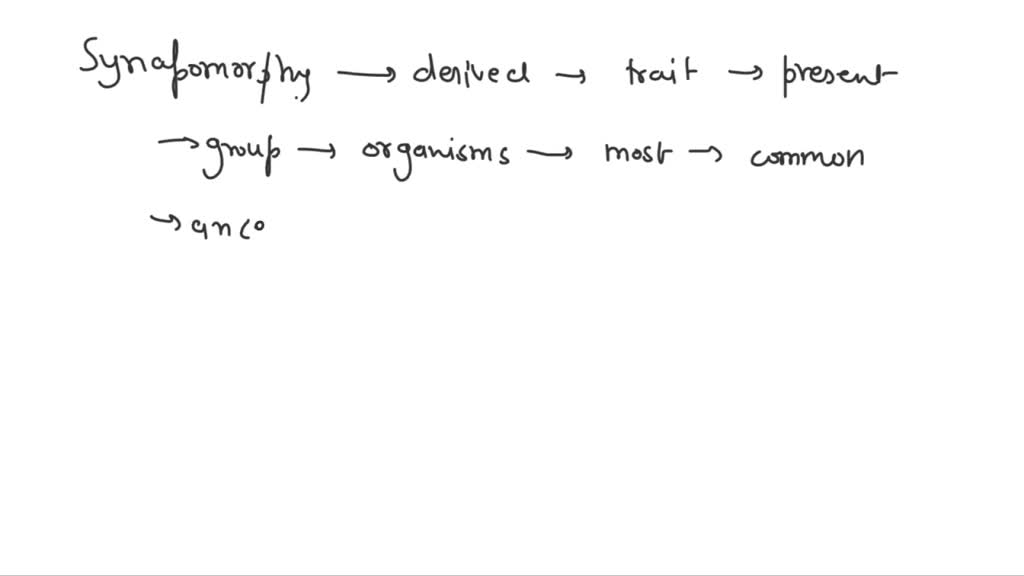 Synapomorphy → derived → trait → present
→ group → organisms → most → common
→ anco